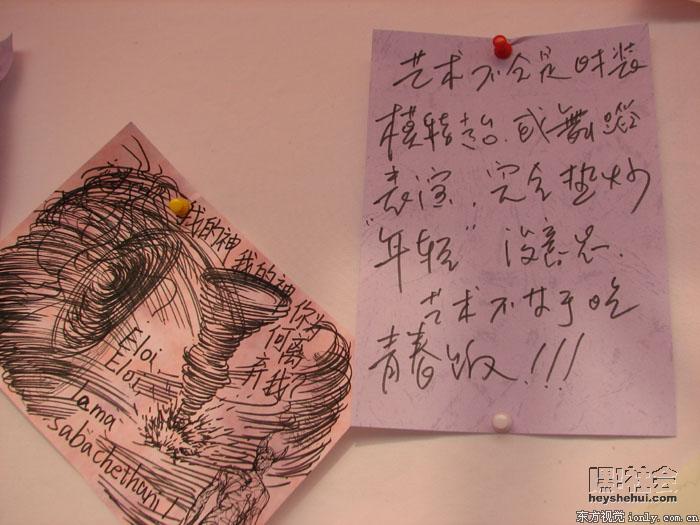 我的神
我的神你为
何离
弃我
Eloi
Eloi
lama
sabachthani!
艺术不全是时装
模特台.或舞蹈
表演.完全垫炒
"年轻"没意思.
艺术不甘于吃
青春饭.!!!
黑社会
heyshehui.com
东方视觉 ionly.com.cn